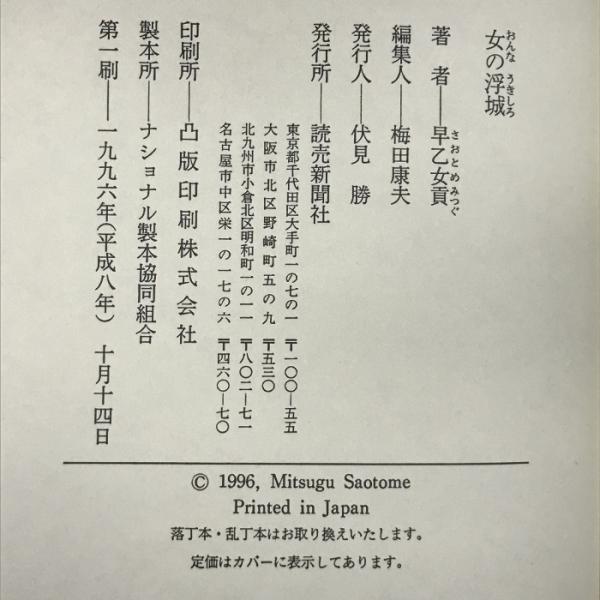 女の浮城
おんな うきしろ
著者――早乙女貢
さおとめみつぐ
編集人――梅田康夫
発行人――伏見 勝
発行所――読売新聞社
東京都千代田区大手町一の七の一 〒一〇〇―五五
大阪市北区野崎町五の九 〒五三〇
北九州市小倉北区明和町一の一一 〒八〇二―七一
名古屋市中区栄一の一七の六 〒四六〇―七〇
印刷所――凸版印刷株式会社
製本所――ナショナル製本協同組合
第一刷――一九九六年(平成八年) 十月十四日
© 1996, Mitsugu Saotome
Printed in Japan
落丁本・乱丁本はお取り換えいたします。
定価はカバーに表示してあります。